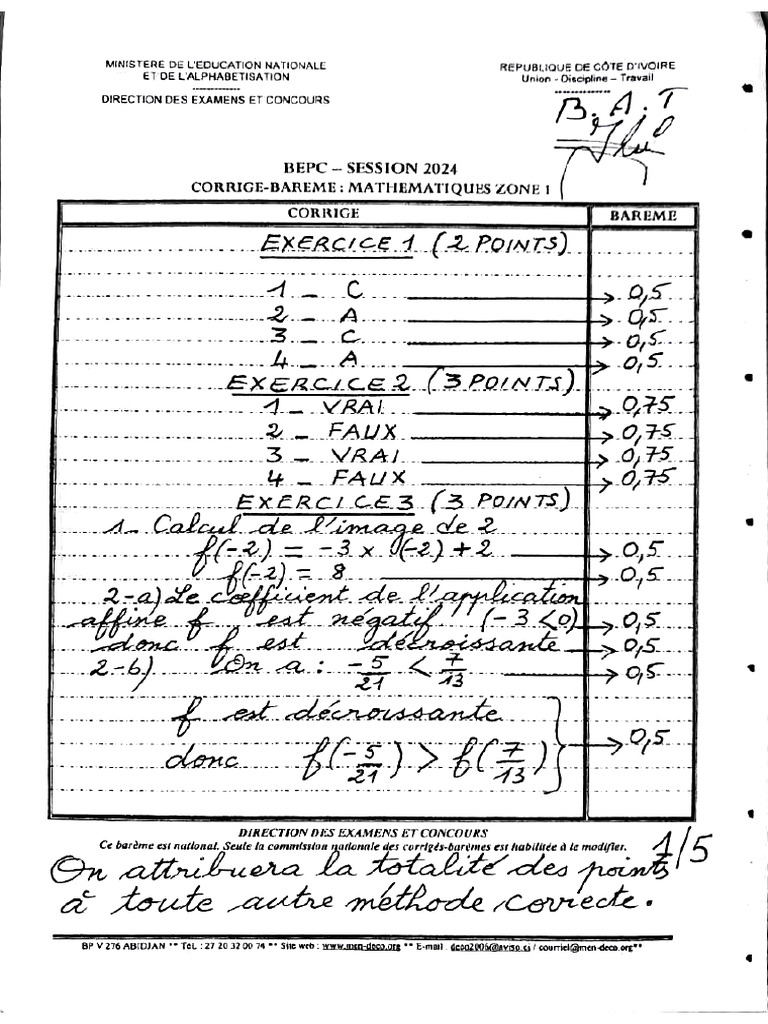 MINISTERE DE L'EDUCATION NATIONALE
ET DE L'ALPHABETISATION
DIRECTION DES EXAMENS ET CONCOURS
REPUBLIQUE DE CÔTE D'IVOIRE
Union - Discipline - Travail
B.A.T
BEPC – SESSION 2024
CORRIGE-BAREME : MATHEMATIQUES ZONE 1
CORRIGE BAREME
EXERCICE 1 (2 POINTS)
1 _ C → 0,5
2 _ A → 0,5
3 _ C → 0,5
4 _ A → 0,5
EXERCICE 2 (3 POINTS)
1 _ VRAI → 0,75
2 _ FAUX → 0,75
3 _ VRAI → 0,75
4 _ FAUX → 0,75
EXERCICE 3 (3 POINTS)
1_ Calcul de l'image de 2
f(-2) = -3 x (-2) + 2 → 0,5
f(-2) = 8 → 0,5
2-a) Le coefficient de l'application
affine f est négatif (-3 < 0) → 0,5
donc f est décroissante → 0,5
2-b) On a : -5/21 < 7/13 → 0,5
f est décroissante
donc f(-5/21) > f(7/13) → 0,5
DIRECTION DES EXAMENS ET CONCOURS
Ce barème est national. Seule la commission nationale des corrigés-barèmes est habilitée à le modifier.
1/5
On attribuera la totalité des points
à toute autre méthode correcte.
BP V 276 ABIDJAN ** Tél. : 27 20 32 00 74 ** Site web : www.men-deco.org ** E-mail : deco2006@aviso.ci / courriel@men-deco.org**